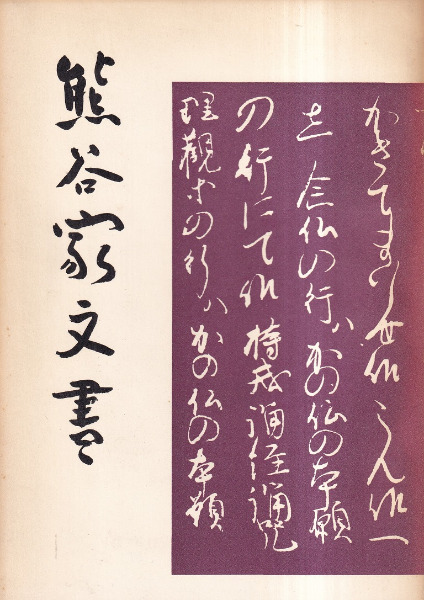 かきてまいらせ候
念仏の行ハかの仏の本願
の行にて候持戒誦経誦呪
理観等の行ハかの仏の本願
熊谷家文書